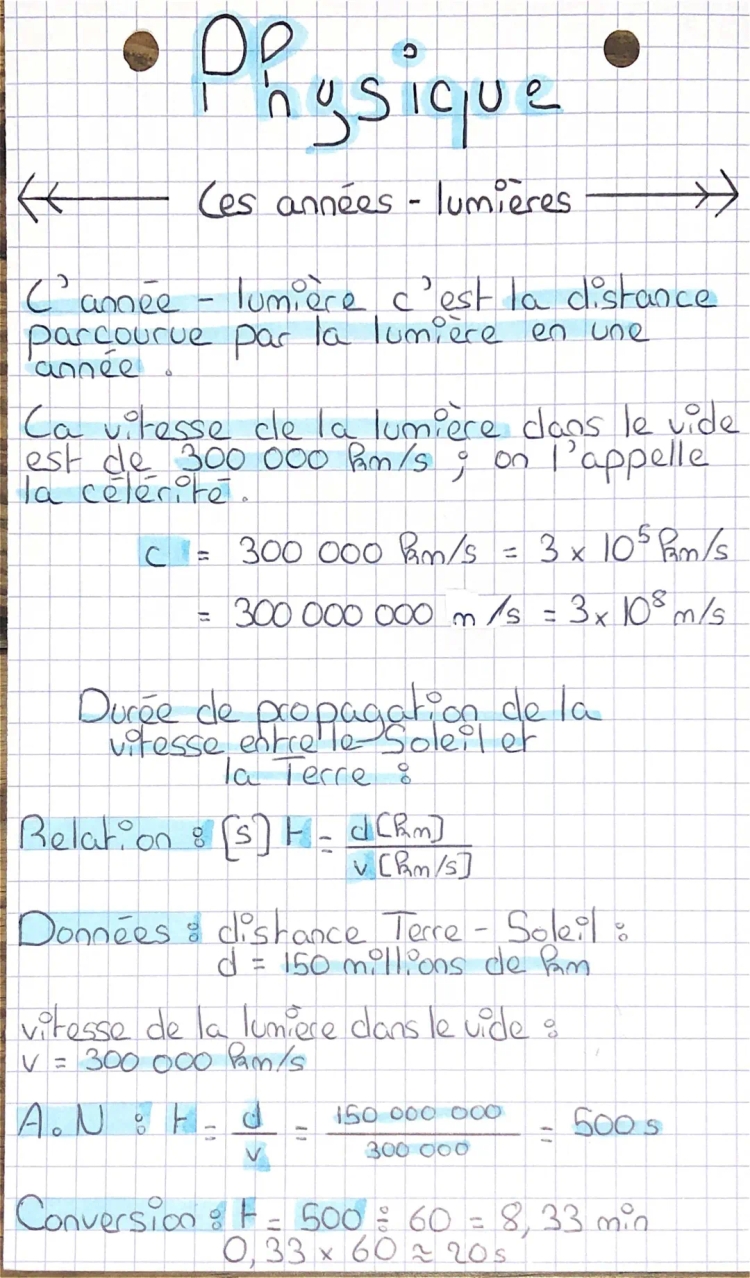 Physique
Les années - lumières
L'année - lumière c'est la distance
parcourue par la lumière en une
année.
La vitesse de la lumière dans le vide
est de 300 000 km/s ; on l'appelle
la célérité.
c = 300 000 km/s = 3 x 10⁵ km/s
= 300 000 000 m/s = 3 x 10⁸ m/s
Durée de propagation de la
vitesse entre le Soleil et
la Terre :
Relation : [s] t = d[km] / v[km/s]
Données : distance Terre - Soleil :
d = 150 millions de km
vitesse de la lumière dans le vide :
v = 300 000 km/s
A.N : t = d / v = 150 000 000 / 300 000 = 500 s
Conversion : t = 500 ÷ 60 = 8,33 min
0,33 x 60 ≈ 20s